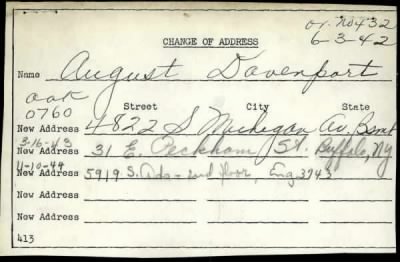 or. no 432
6-3-42
CHANGE OF ADDRESS
Name August Davenport
Oak
0760
Street City State
New Address 4822 S Michigan Av. Bsmt
3-16-43
New Address 31 E. Peckham St. Buffalo, NY
11-10-44
New Address 5919 S. Ada - 2nd floor, Eng. 3743
New Address
New Address
413